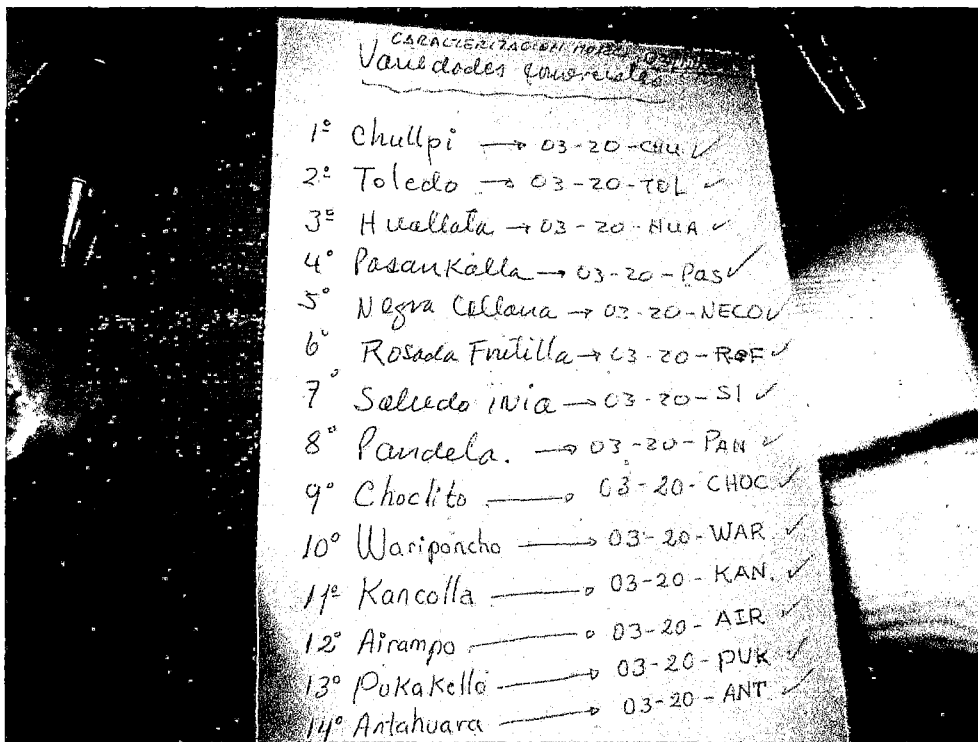 CARACTERIZACION
Variedades comerciales
1º Chullpi → 03-20-CHU ✓
2º Toledo → 03-20-TOL ✓
3º Huallata → 03-20-HUA ✓
4º Pasankalla → 03-20-Pas ✓
5º Negra Collana → 03-20-NECO ✓
6º Rosada Frutilla → 03-20-ROF ✓
7º Salcedo iNia → 03-20-SI ✓
8º Pandela. → 03-20-PAN ✓
9º Choclito → 03-20-CHOC ✓
10º Wariponcho → 03-20-WAR ✓
11º Kancolla → 03-20-KAN. ✓
12º Airampo → 03-20-AIR ✓
13º Pukakello → 03-20-PUK ✓
14º Antahuara → 03-20-ANT ✓